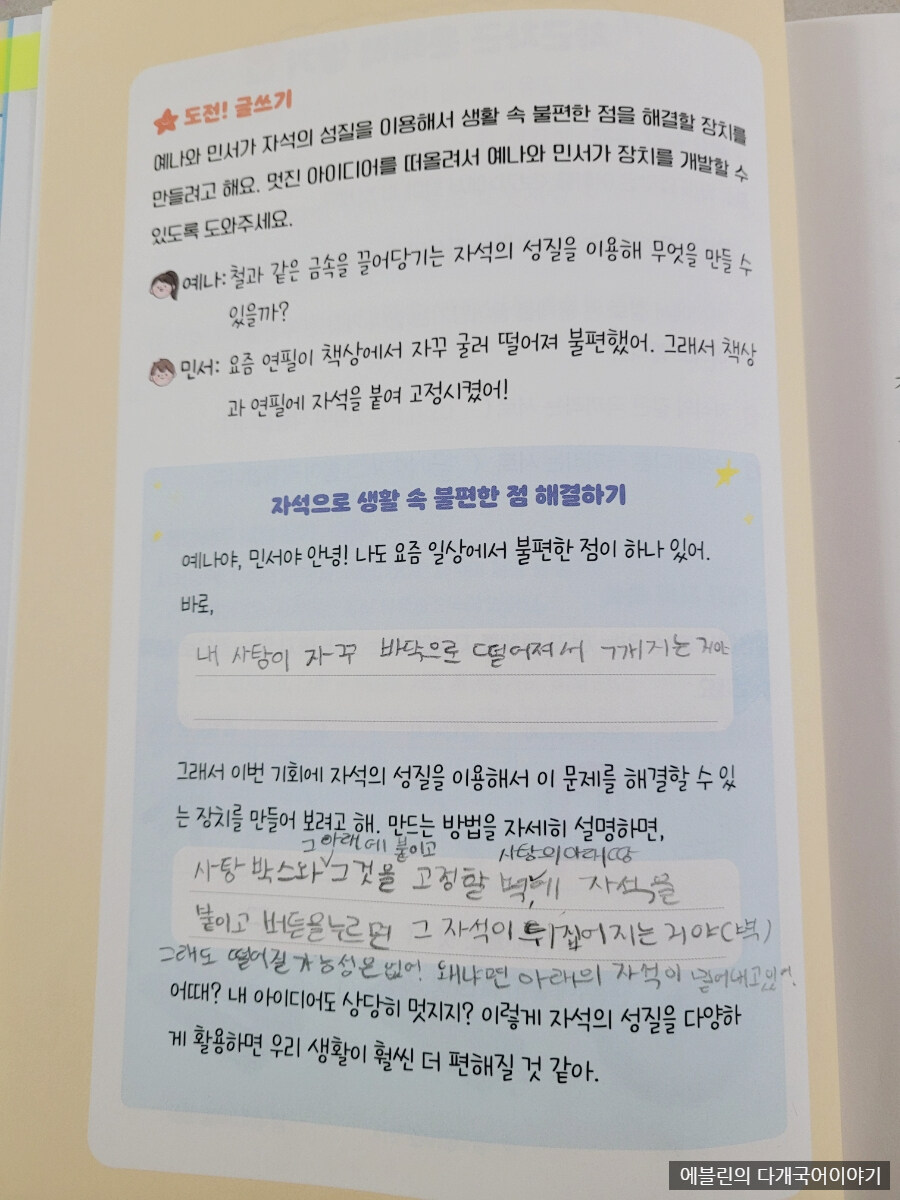 도전! 글쓰기
예나와 민서가 자석의 성질을 이용해서 생활 속 불편한 점을 해결할 장치를
만들려고 해요. 멋진 아이디어를 떠올려서 예나와 민서가 장치를 개발할 수
있도록 도와주세요.
예나: 철과 같은 금속을 끌어당기는 자석의 성질을 이용해 무엇을 만들 수
있을까?
민서: 요즘 연필이 책상에서 자꾸 굴러 떨어져 불편했어. 그래서 책상
과 연필에 자석을 붙여 고정시켰어!
자석으로 생활 속 불편한 점 해결하기
예나야, 민서야 안녕! 나도 요즘 일상에서 불편한 점이 하나 있어.
바로,
내 사탕이 자꾸 바닥으로 떨어져서 깨지는 거야
그래서 이번 기회에 자석의 성질을 이용해서 이 문제를 해결할 수 있
는 장치를 만들어 보려고 해. 만드는 방법을 자세히 설명하면,
그 아래에 붙이고 사탕의 아래
사탕 박스와 그것을 고정할 벽에 자석을
붙이고 버튼을 누르면 그 자석이 뒤집어지는 거야(벽)
그래도 떨어질 가능성은 없어! 왜냐면 아래의 자석이
어때? 내 아이디어도 상당히 멋지지? 이렇게 자석의 성질을 다양하
게 활용하면 우리 생활이 훨씬 더 편해질 것 같아.
에블린의 다개국어이야기